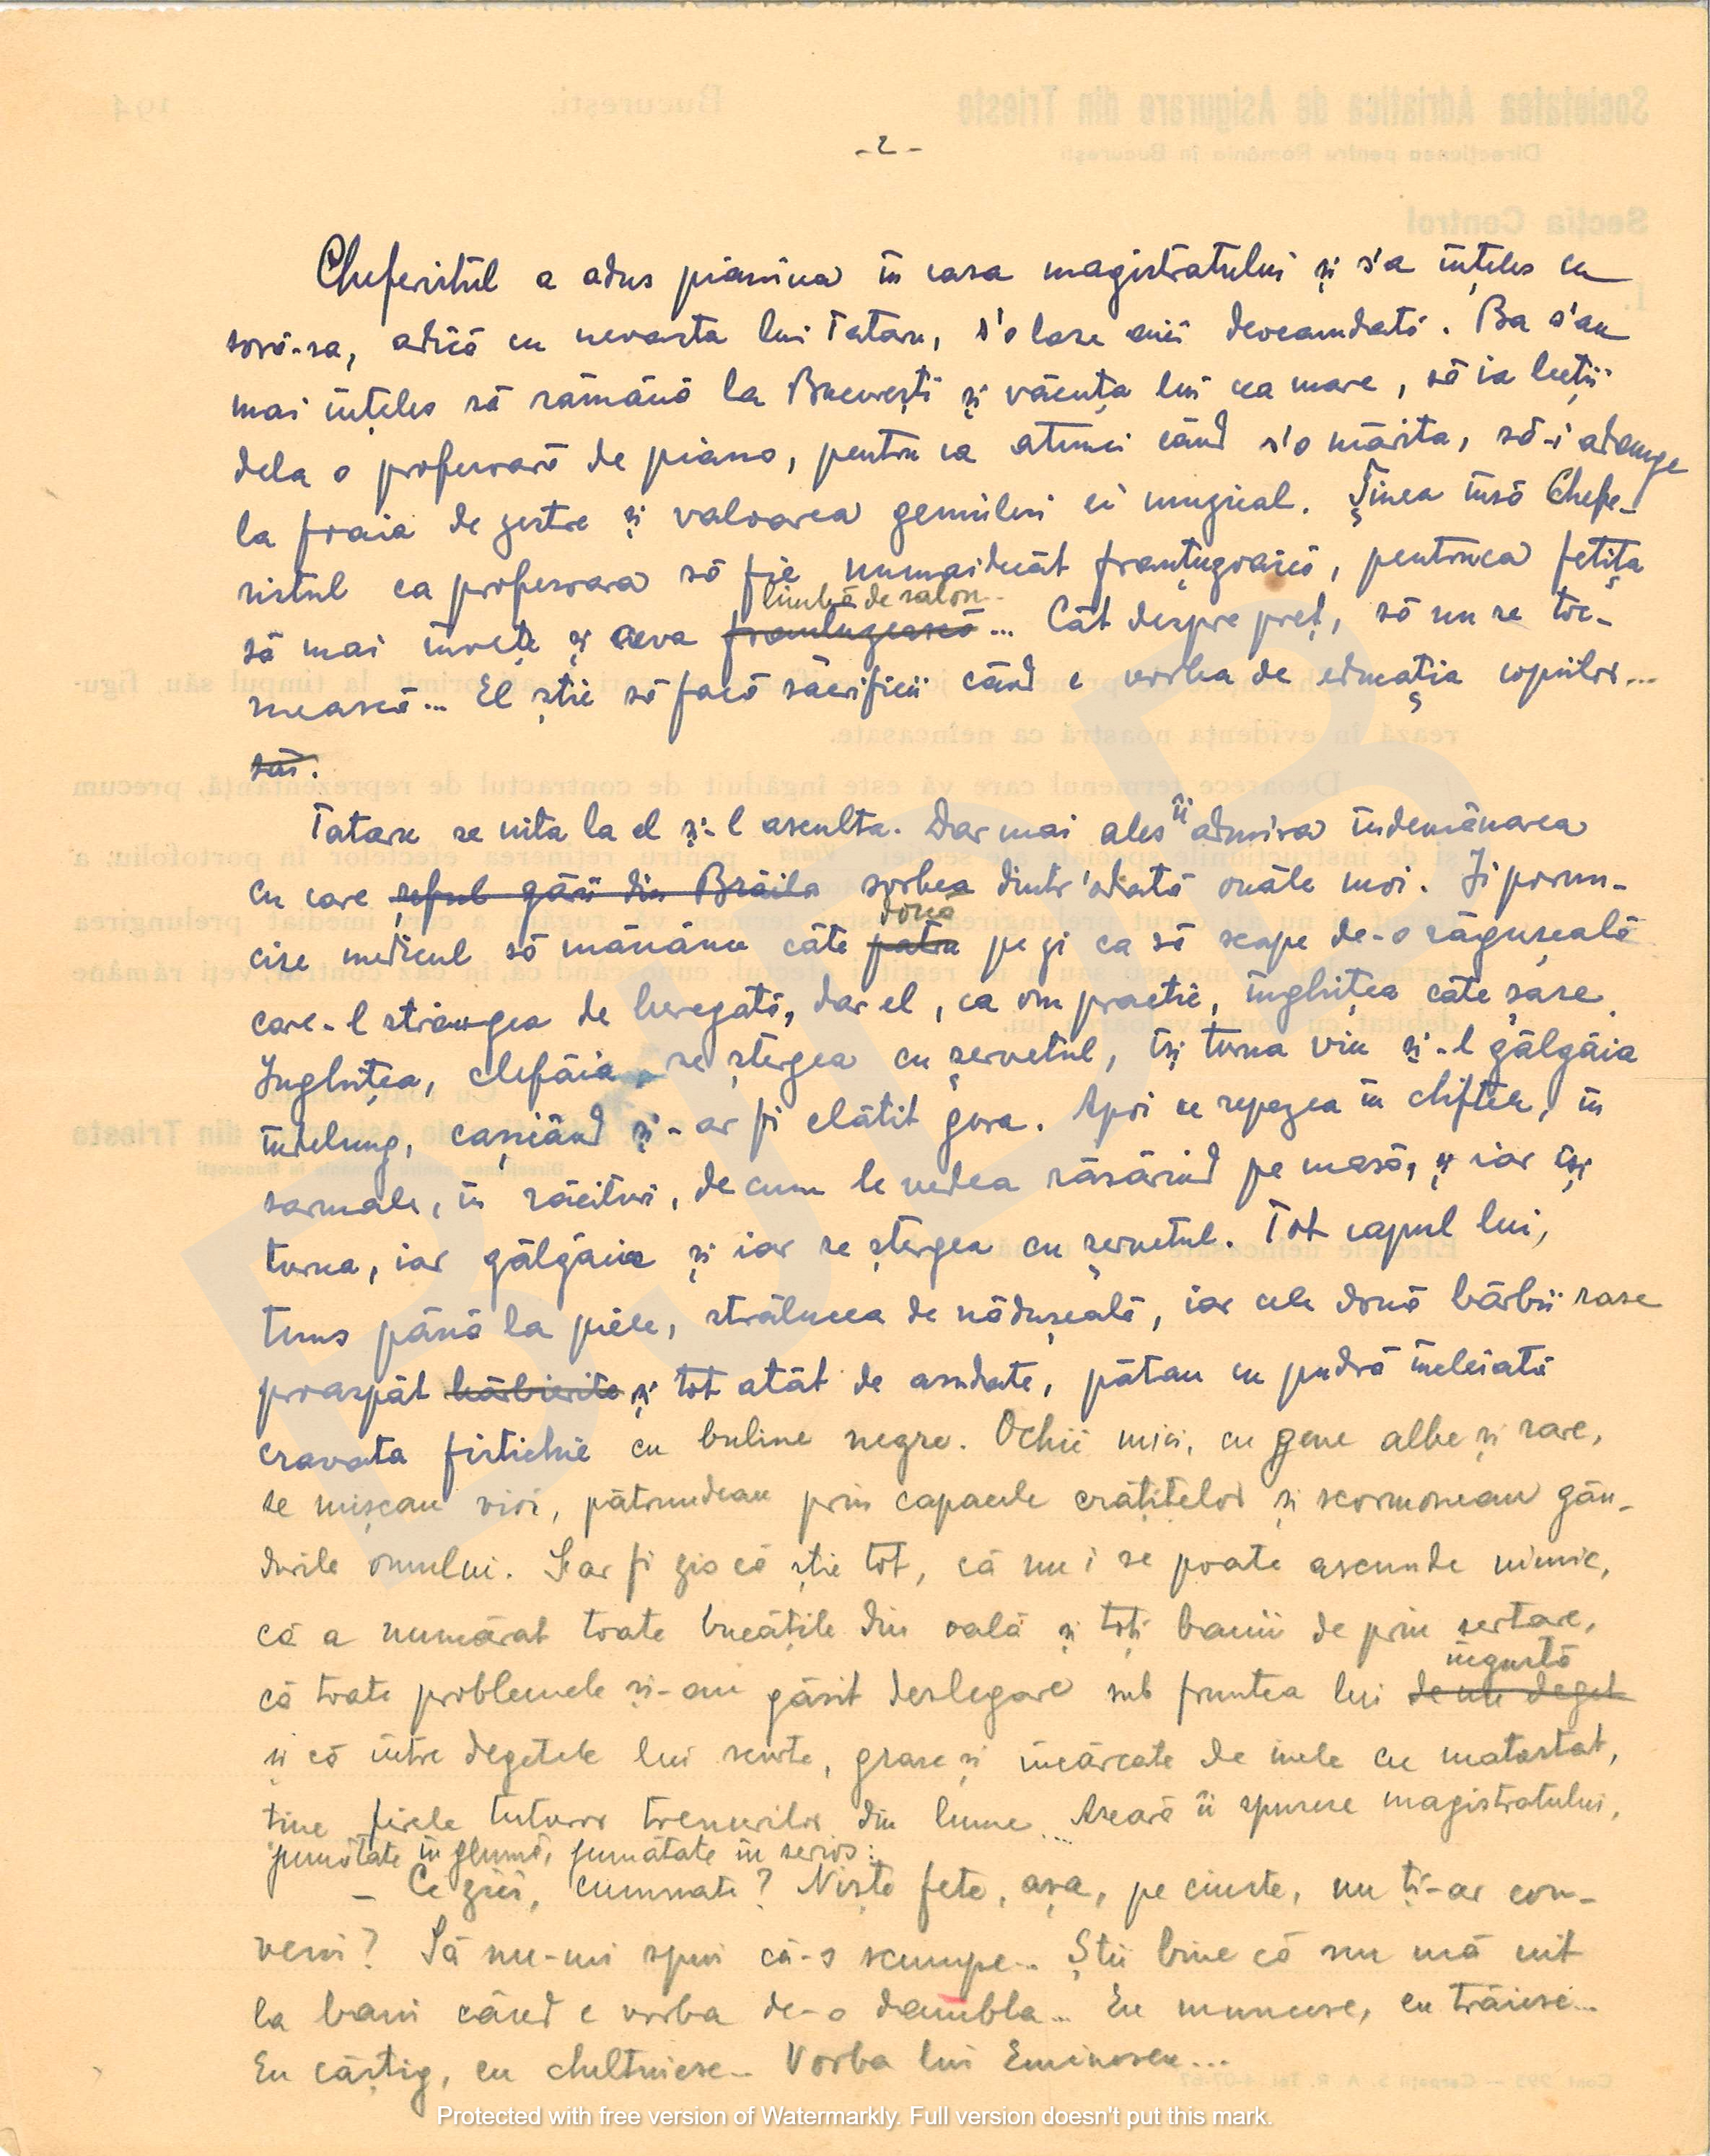 - 2 -
Cheferistul a adus pianina în casa magistratului și s'a înțeles cu
soră-sa, adică cu nevasta lui Tataru, s'o lase aici deocamdată. Ba s'au
mai înțeles să rămână la București și văcuța lui cea mare, să ia lecții
dela o profesoară de piano, pentru ca atunci când s'o mărita, să-i adauge
la foaia de zestre și valoarea geniului ei muzical. Ținea însă Chefe-
ristul ca profesoara să fie numaidecât franțuzoaică, pentruca fetița
limbă de salon
să mai învețe și ceva franțuzească... Cât despre preț, să nu se toc-
mească... El știe să facă sacrificii când e vorba de educația copiilor...
săi.
Tataru se uita la el și-l asculta. Dar mai ales îi admira îndemânarea
cu care șeful gării din Brăila sorbea dintr'odată ouăle moi. Ji porun-
două
cise medicul să mănânce câte patru pe zi ca să scape de-o răgușeală
care-l strângea de beregată, dar el, ca om practic, înghițea câte șase.
Inghițea, clefăia, se ștergea cu șervetul, își turna vin și-l gâlgâia
îndelung, cașicând și-ar fi clătit gura. Apoi se repezea în chiftele, în
sarmale, în răcituri, de cum le vedea răsărind pe masă, și iar își
turna, iar gâlgâia și iar se ștergea cu șervetul. Tot capul lui,
tuns până la piele, strălucea de nădușeală, iar cele două bărbii rase
proaspăt bărbierite și tot atât de asudate, pătau cu pudră încleiată
cravata fistichie cu buline negre. Ochii mici, cu gene albe și rare,
se mișcau vioi, pătrundeau prin capacele crătițelor și scormoneau gân-
durile omului. S'ar fi zis că știe tot, că nu i se poate ascunde nimic,
că a numărat toate bucățile din oală și toți banii de prin sertare,
îngustă
că toate problemele și-au găsit deslegare sub fruntea lui de un deget
și că între degetele lui scurte, grase și încărcate de inele cu matostat,
ține firele tuturor trenurilor din lume... Aseară îi spusese magistratului,
jumătate în glumă, jumătate în serios:
– Ce zici, cumnate? Niște fete, așa, pe cinste, nu ți-ar con-
veni? Să nu-mi spui că-s scumpe... Știi bine că nu mă uit
la bani când e vorba de-o dambla... Eu muncesc, eu trăiesc...
Eu câștig, eu cheltuiesc... Vorba lui Eminescu...
Protected with free version of Watermarkly. Full version doesn't put this mark.